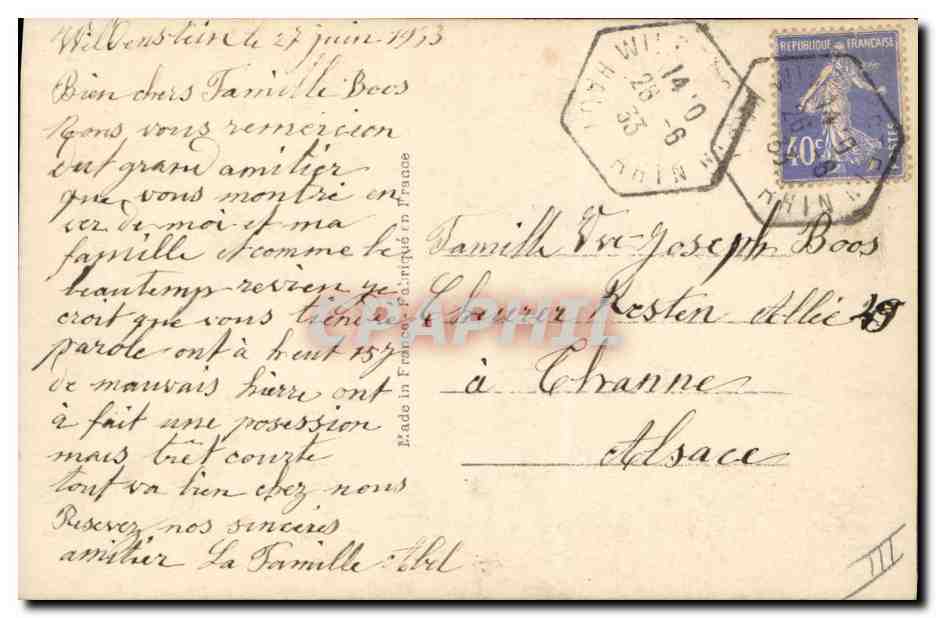 Wildenstein le 27 juin 1933
Bien chers Famille Boos
Nous vous remercion
dut grand amitier
que vous montré en
ver de moi et ma
famille et comme le
beautemp revien ye
croit que vous tiendré
parole ont à heut 15j
de mauvais hierre ont
à fait une posession
mais trêt courte
tout va bien chez nous
Resevez nos sincères
amitier La Famille Abel
Made in France Fabriqué en France
WIL
HAUT RHIN
14 10
26 -6
33
REPUBLIQUE FRANÇAISE
40c
POSTES
RHIN
Famille Vve Joseph Boos
Kesten Allée 29
à Thanne
Alsace
III
CPAPHIL